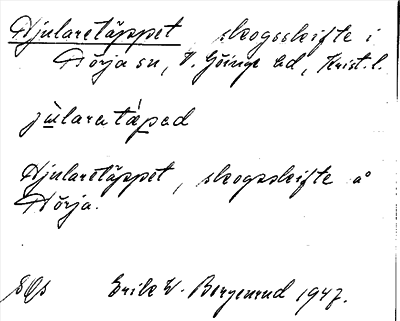 Hjularetäppet skogsskifte i
Hörja sn, V. Göinge hd, Krist. l.
jùlaratæ̀pəd
Hjularetäppet, skogsskifte å
Hörja.
Erik W. Borgenrud 1947.